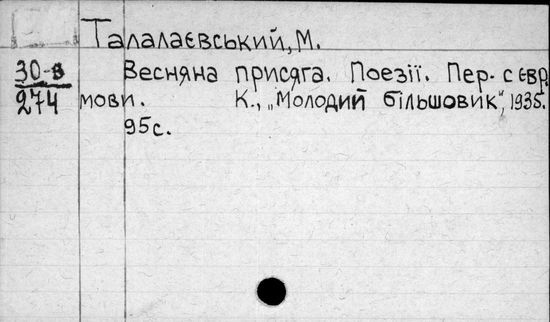 Талалаєвський, М.
30-в
274
Весняна присяга. Поезії. Пер. с євр.
мови. К., „Молодий більшовик", 1935.
95с.